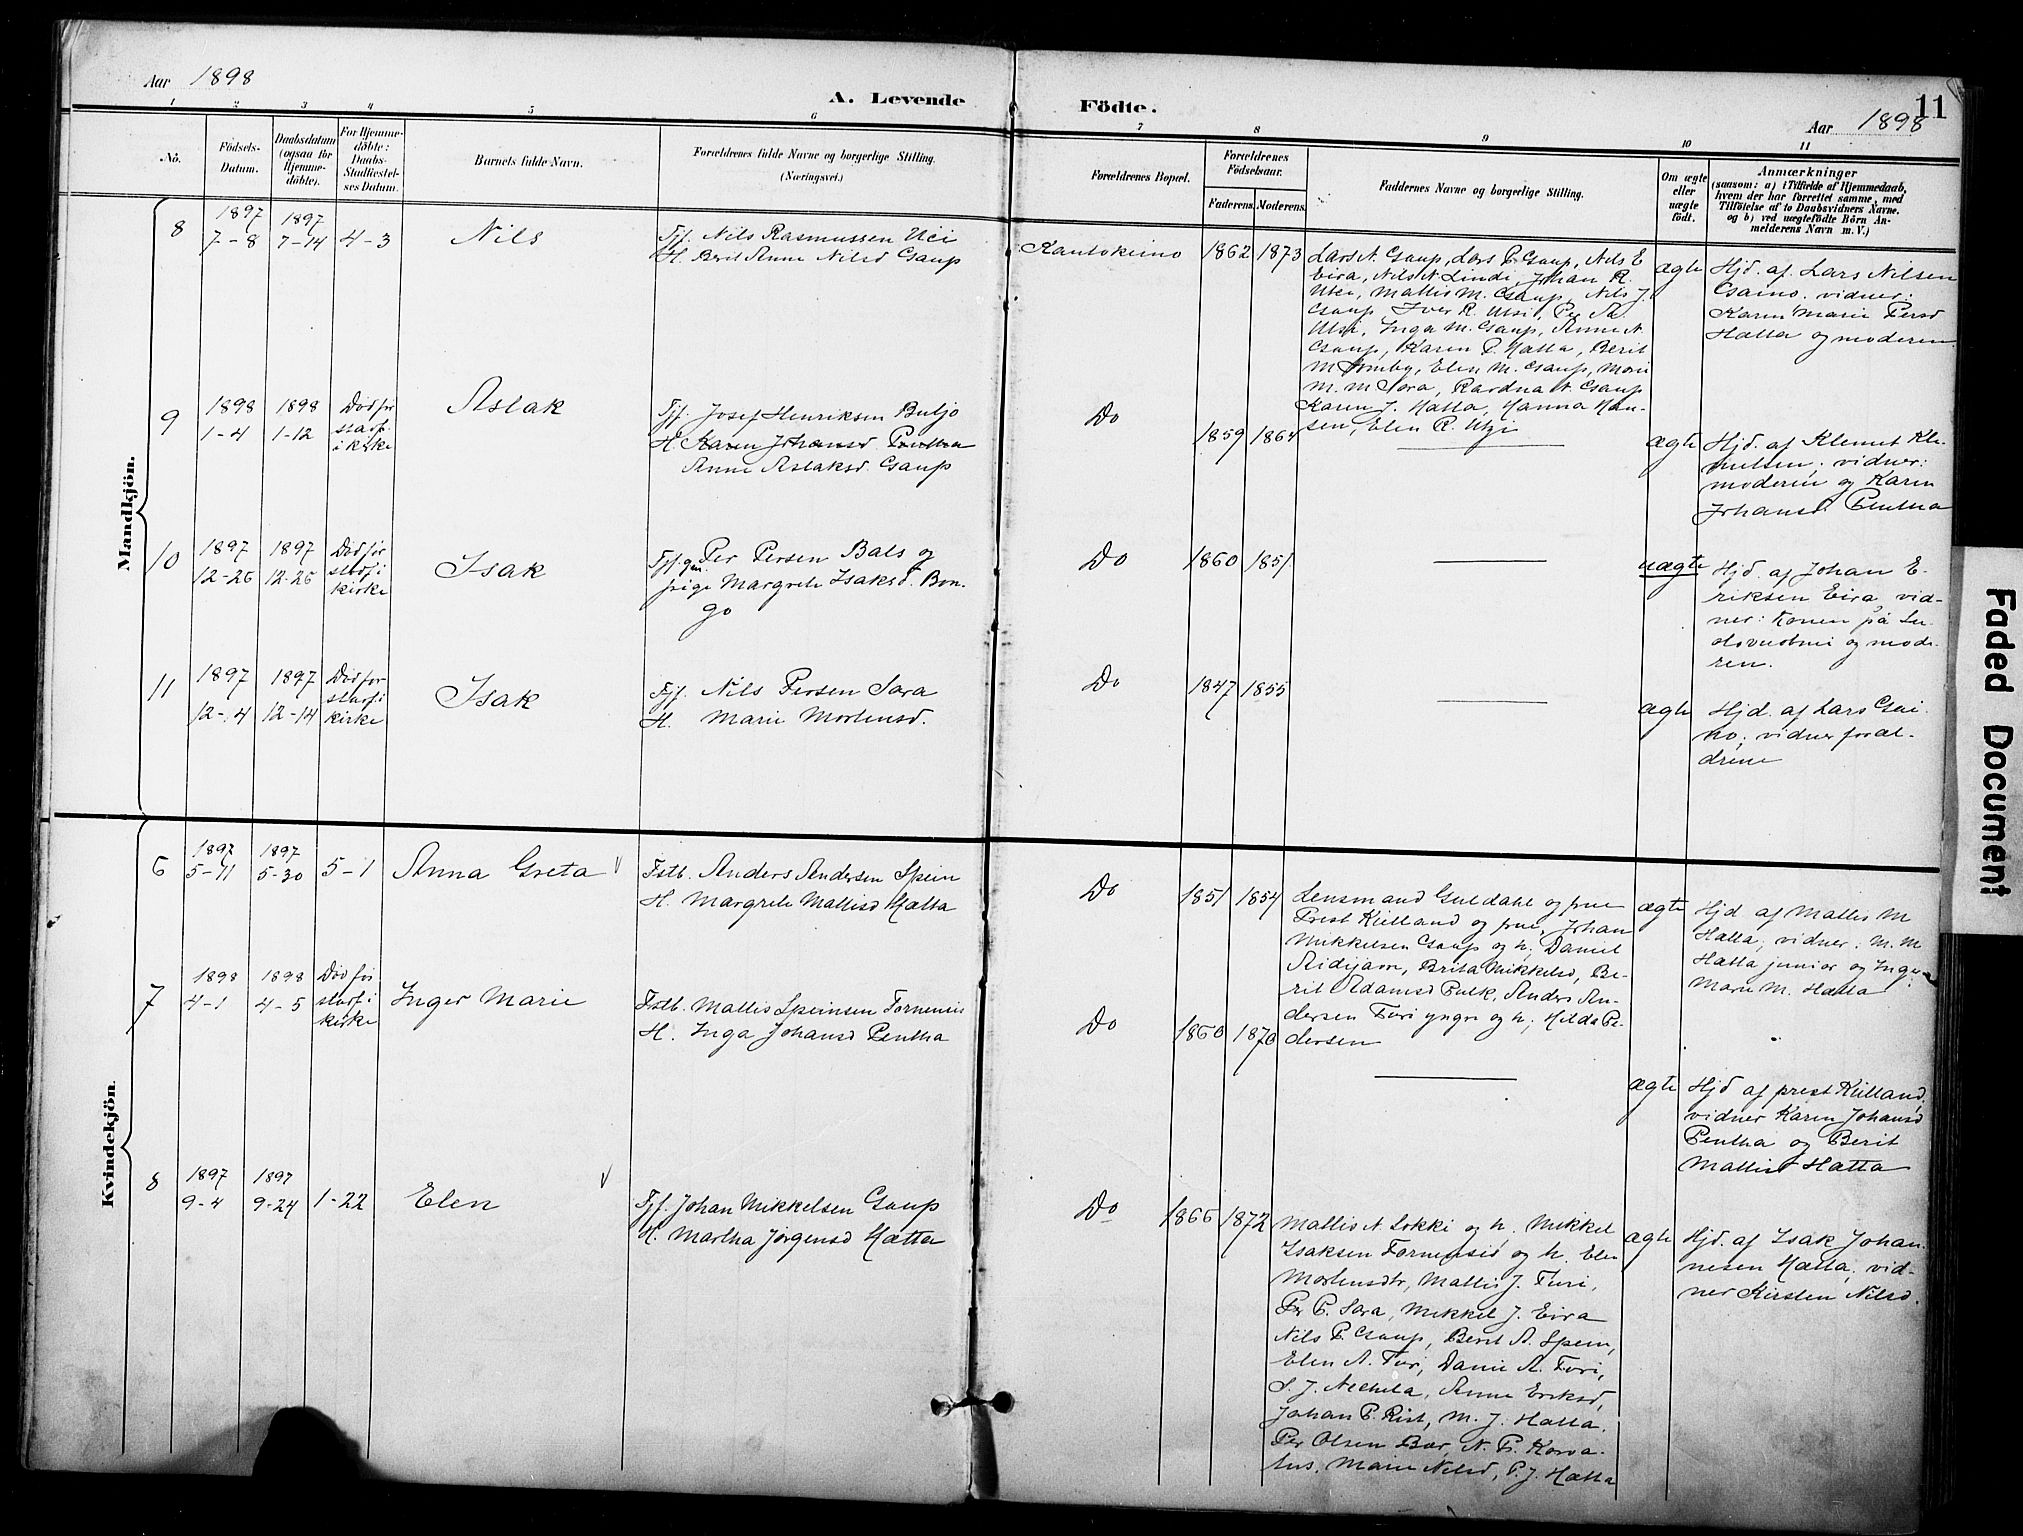 Aar 1898
A. Levende Födte.
11
Aar 1898
1 2 3 4 5 6 7 8 9 10 11
No.
Födsels-Datum.
Daabsdatum (ogsaa for Hjemmedöbte).
For Hjemmedöbte: Daabs-Stadfæstelses Datum.
Barnets fulde Navn.
Forældrenes fulde Navne og borgerlige Stilling.
(Næringsvei.)
Forældrenes Bopæl.
Forældrenes Födselsaar.
Faderens. Moderens.
Faddernes Navne og borgerlige Stilling.
Om ægte eller uægte födt.
Anmærkninger
(saasom: a) i Tilfælde af Hjemmedaab,
hvem der har forrettet samme, med
Tilföielse af to Daabsvidners Navne.
og b) ved uægtefödte Börn An-
melderens Navn m. V.)
Mandkjön.
8 1897 7-8 1897 7-14 4-3 Nils
Fjf. Nils Rasmussen Uci
H. Berit Anne Nilsd Gaup
Kautokeino 1862 1873
Lars N. Gaup, Lars P. Gaup, Nils E
Eira, Nils N. Lindi, Johan R.
Utsi, Mattis M. Gaup, Nils J.
Gaup, Iver R. Utsi, Per
Utsi, Inga M. Gaup, Anne N.
Gaup, Karen P. Hætta, Berit
M Somby, Elen M. Gaup, Marie
M. M Sara, Rardna A. Gaup
Karen J. Hætta, Hanna Han-
sen, Elen R. Utsi
ægte
Hjd. af Lars Nilsen
vidner:
Karen Marie Persd
Hætta og moderen.
9 1898 1-4 1898 1-12
Död før
stadf.
i kirke
Aslak
Fjf. Josef Henriksen Buljo
H. Karen Johansd. Pentha
Anne Aslaksd. Gaup
Do 1859 1864
ægte
Hjd. af Klemet Kle-
metsen; vidner:
moderen og Karen
Johansd. Pentha
10 1897 12-26 1897 12-26
Död før
stadf. i
kirke
Isak
Fjf. Per Persen Bals og
pige Margrete Isaksd. Bon-
go
Do 1860 1851
uægte
Hjd. af Johan E-
riksen Eira, vid-
ner: Konen på
og mode-
ren.
11 1897 12-4 1897 12-14
Död før
stadf. i
kirke
Isak
Fjf. Nils Persen Sara
H. Marie Mortensd.
Do 1847 1855
ægte
Hjd. af Lars
vidner foræl-
drene
Kvindekjön.
6 1897 5-11 1897 5-30 5-1 Anna Greta
Fstb. Anders Andersen Spein
H. Margrete Mattisd Hætta
Do 1851 1854
Lensmand Guldahl og frue
Prest Kielland og frue, Johan
Mikkelsen Gaup og h; Daniel
Aidijavre, Brita Mikkelsd, Be-
rit Adamsd Pulk, Anders An-
dersen Turi yngre og h; Hilda Pe-
dersen
ægte
Hjd af Mattis M
Hætta; vidner: M. M
Hætta junior og Inger
Marie M. Hætta
7 1898 4-1 1898 4-5
Död før
stadf. i
kirke
Inger Marie
Fstb. Mattis Speinsen Fornenis
H. Inga Johansd Pentha
Do 1860 1870
ægte
Hjd af prest Kielland,
vidner Karen Johansd
Pentha og Berit
Mattisd Hætta
8 1897 9-4 1897 9-24 1-22 Elen
Fjf. Johan Mikkelsen Gaup
H. Martha Jørgensd Hætta
Do 1866 1872
Mattis N. Lokki og h. Mikkel
Isaksen Fornensis og h. Elen
Mortensdtr, Mattis J. Turi,
Per P. Sara, Mikkel J. Eira
Nils P. Gaup, Berit A. Spein,
Elen A. Turi, Danie A. Turi,
S. J. Nechela, Anne Eriksd,
Johan P. Rist, M. J. Hætta.
Per Olsen Bær, N. P. Korva-
tus, Marie Nilsd, P. J. Hætta
ægte
Hjd. af Isak Johan-
nesen Hætta; vid-
ner Kirsten Nilsd.
Faded Document